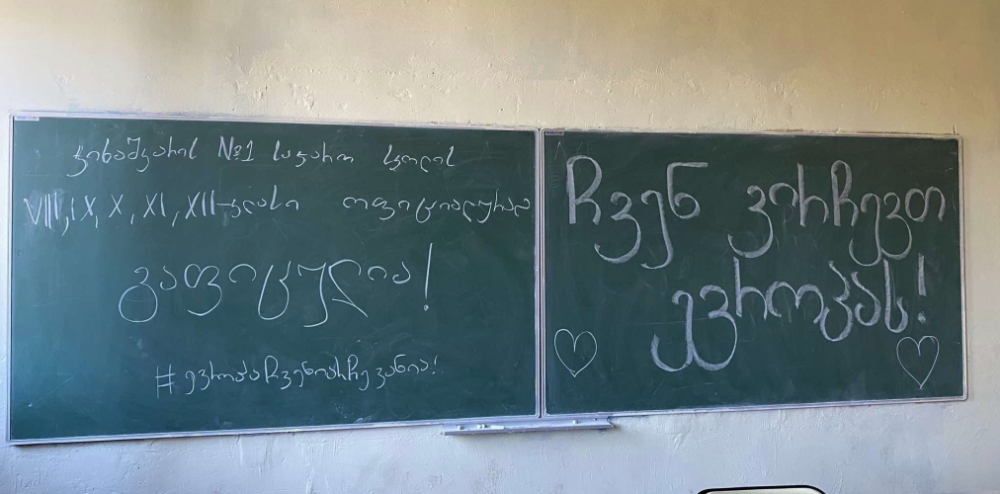 ჯიხაშკარის №1 საჯარო სკოლის
VIII, IX, X, XI, XII-კლასი ოფიციალურად
გაფიცულია!
#ევროპაჩვენიარჩევანია!
ჩვენ ვირჩევთ
ევროპას!